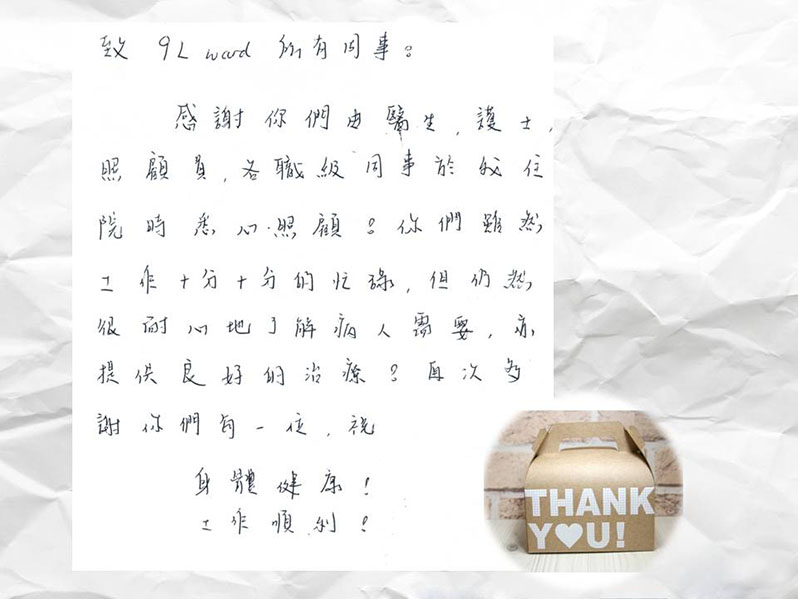 致 9L ward 所有同事：
感謝你們由醫生，護士，
照顧員，各職級同事於我住
院時悉心照顧！你們雖然
工作十分十分的忙碌，但仍然
很耐心地了解病人需要，亦
提供良好的治療！再次多
謝你們每一位，祝
身體健康！
工作順利！
THANK
YOU!